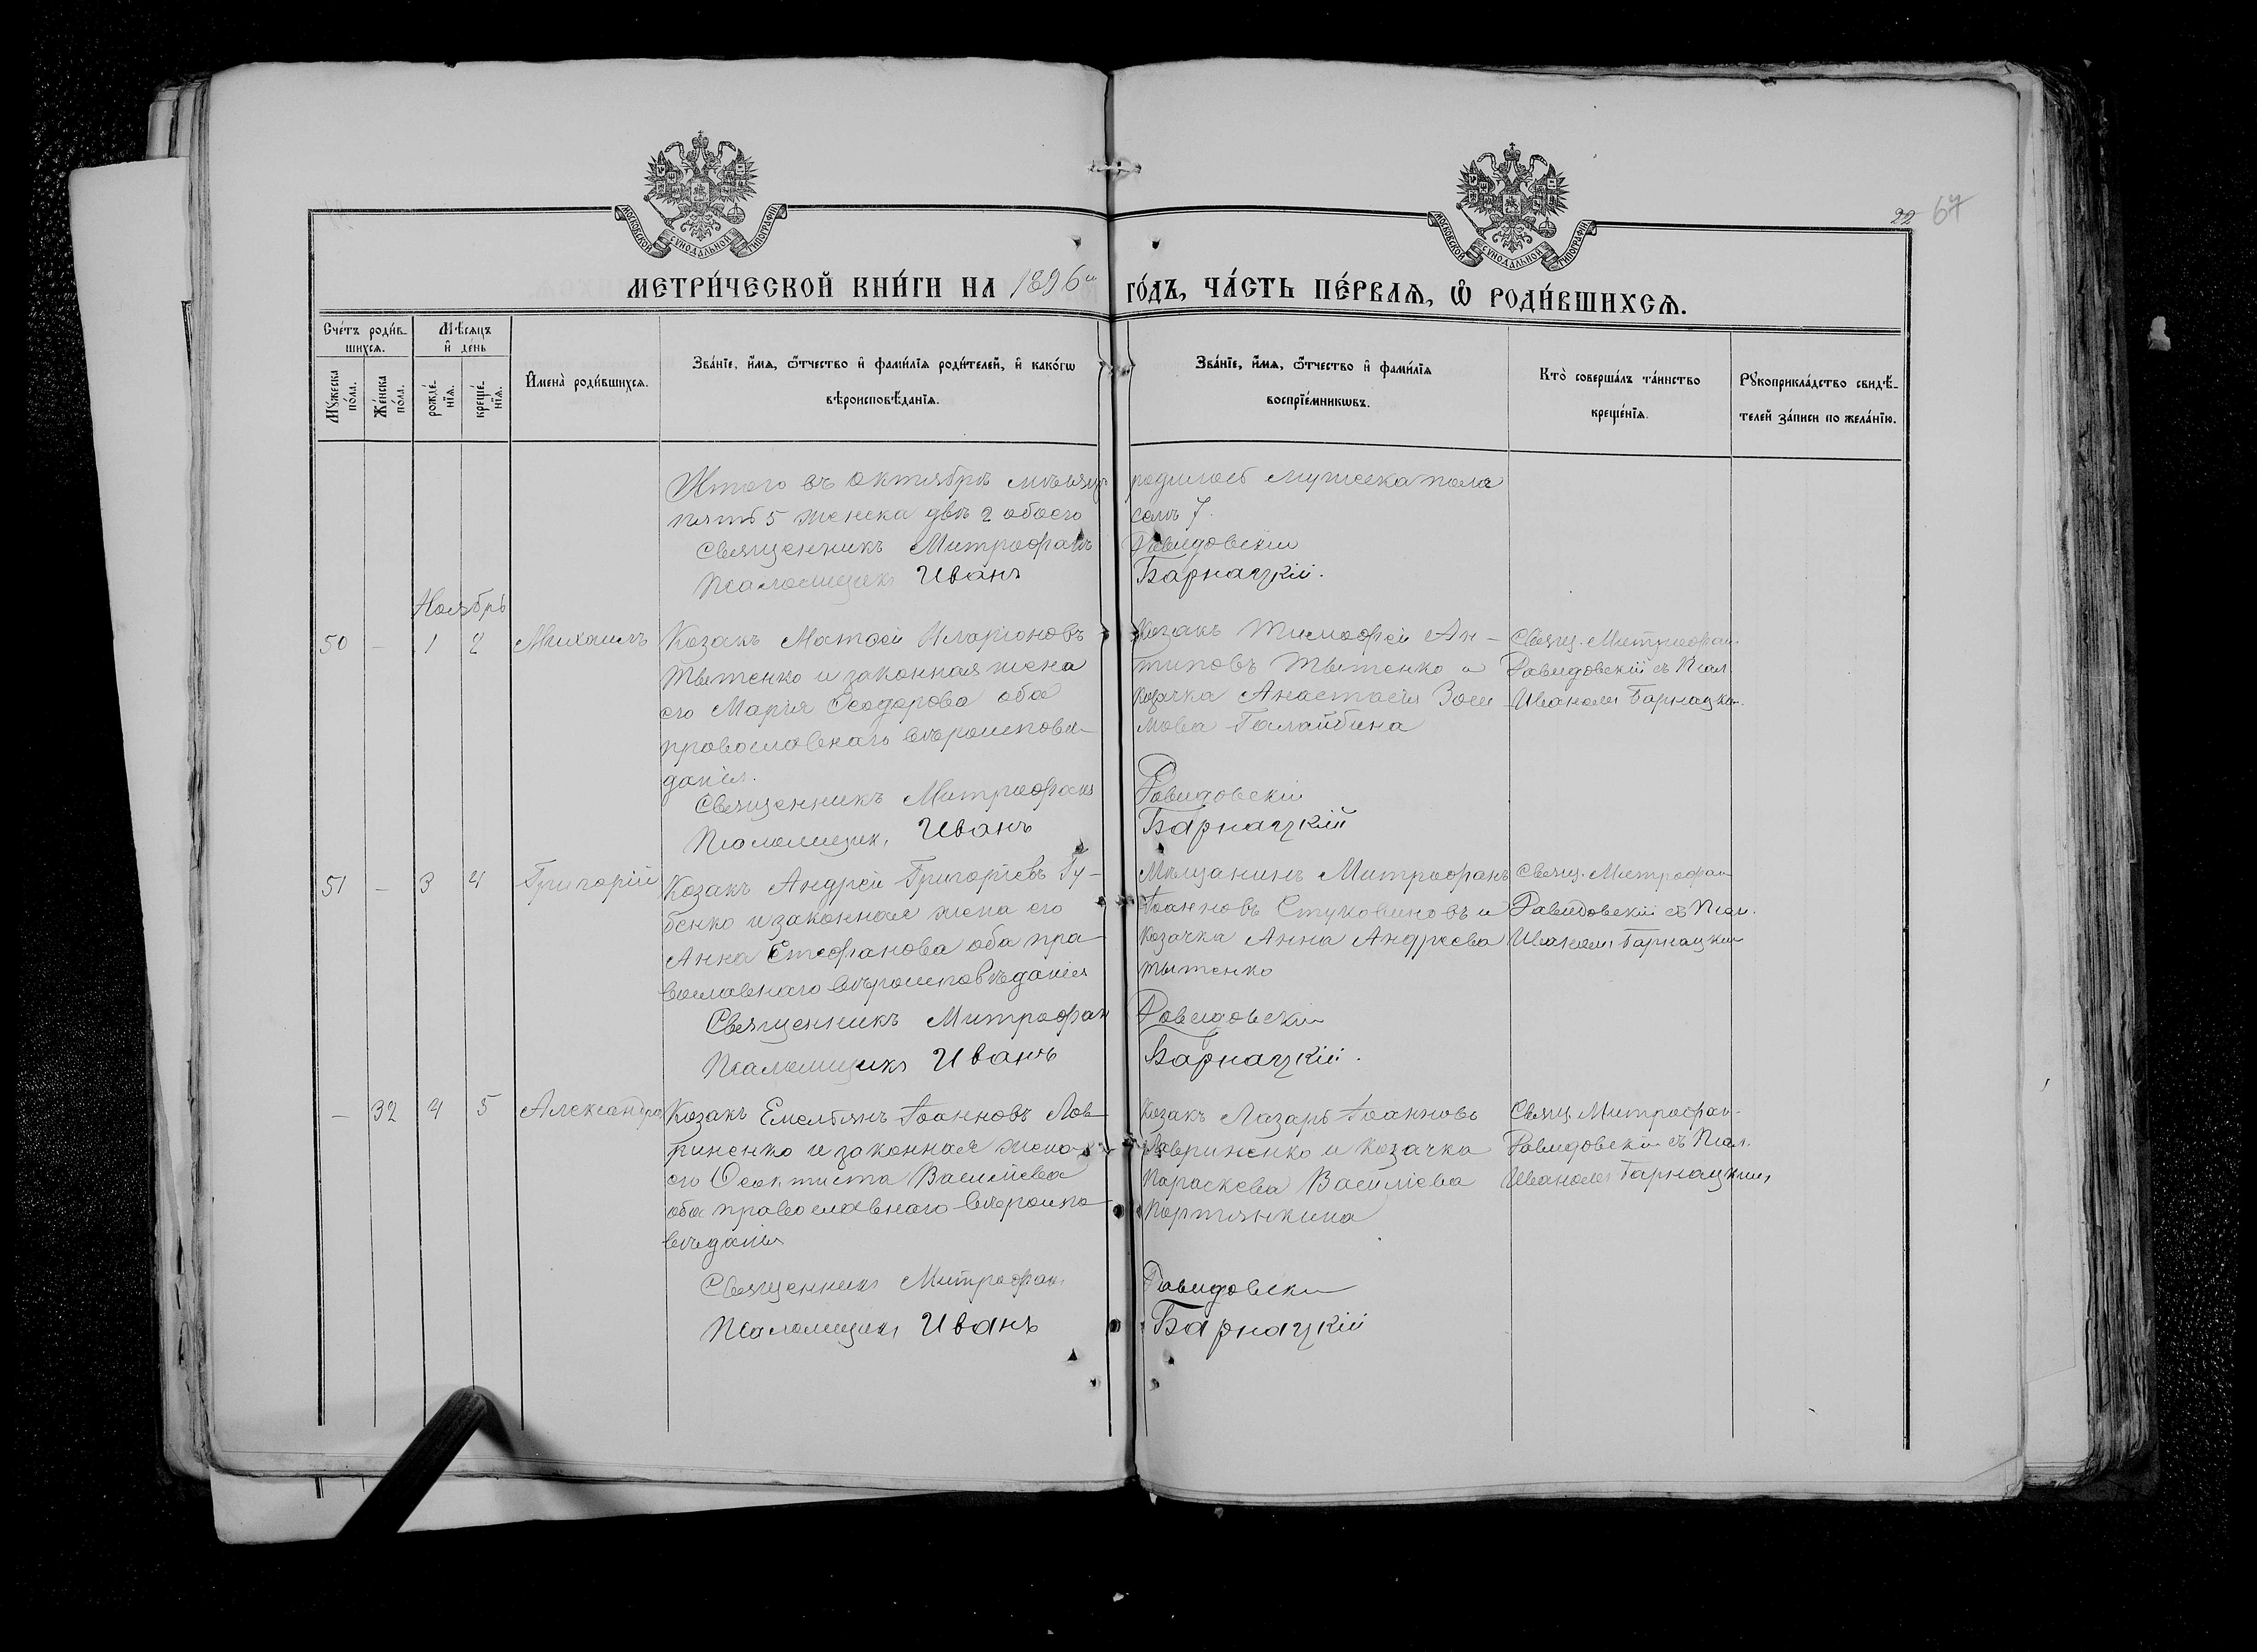 МОСКОВСКОЙ СѴНОДАЛЬНОЙ ТИПОГРАФІИ
МОСКОВСКОЙ СѴНОДАЛЬНОЙ ТИПОГРАФІИ
22 67
МЕТРИ́ЧЕСКОЙ КНИ́ГИ НА 1896й ГО́ДЪ, ЧА́СТЬ ПЕ́РВАѦ, Ѽ РОДИ́ВШИХСѦ.
Сче́тъ роди́в-
шихсѧ.
Мѣ́сѧцъ
и҆ де́нь
Мꙋ́жеска
по́ла.
Же́нска
по́ла.
рожде́-
нїѧ.
креще́-
нїѧ.
И҆мена̀ роди́вшихсѧ.
Зва́нїе, и҆́мѧ, ѻ҆́тчество и҆ фами́лїѧ роди́телей, и҆ како́гѡ
вѣроисповѣ́данїѧ.
Зва́нїе, и҆́мѧ, ѻ҆́тчество и҆ фами́лїѧ
воспрїе́мникѡвъ.
Кто̀ соверша́лъ та́инство
креще́нїѧ.
Рꙋкоприкла́дство свидѣ́-
телей за́писи по жела́нїю.
Итого въ октябрѣ мѣсяцѣ родилось мужеска пола
пять 5 женска двѣ 2 обоего семь 7.
Священникъ Митрофанъ Давидовскій
Псаломщикъ Иванъ Барнацкій.
Ноябрь
50 - 1 2 Михаилъ
Козакъ Матѳей Иларіоновъ
Тытенко и законная жена
его Марія Ѳеодорова оба
православнаго вѣроиспове-
данія.
Козакъ Тимофей Ан-
типовъ Тытенко и
козачка Анастасія Зоси
мова Галайбина
Свящ. Митрофан.
Давидовскій съ Псал.
Иваномъ Барнацким.
Священникъ Митрофанъ Давидовскій
Псаломщикъ Иванъ Барнацкій
51 - 3 4 Григорій
Козакъ Андрей Григоріевъ Гу-
бенко и законная жена его
Анна Стефанова оба пра-
вославнаго вѣроисповѣданія
Мѣщанинъ Митрофанъ
Іоанновъ Стуковиновъ и
козачка Анна Андреева
Тытенко
Свящ. Митрофан
Давидовскій съ Псал.
Иваномъ Барнацким
Священникъ Митрофан Давидовскій
Псаломщикъ Иванъ Барнацкій.
- 32 4 5 Александра
Козакъ Емельянъ Іоанновъ Лав-
риненко и законная жена
его Ѳеоктиста Василіева
оба православнаго вѣроиспо-
вѣданія
Козакъ Лазарь Іоанновъ
Лавриненко и козачка
Параскева Василіева
Портянкина
Свящ. Митрофан-
Давидовскій съ Псал.
Иваномъ Барнацким,
Священникъ Митрофанъ Давидовски
Псаломщикъ Иванъ Барнацкій